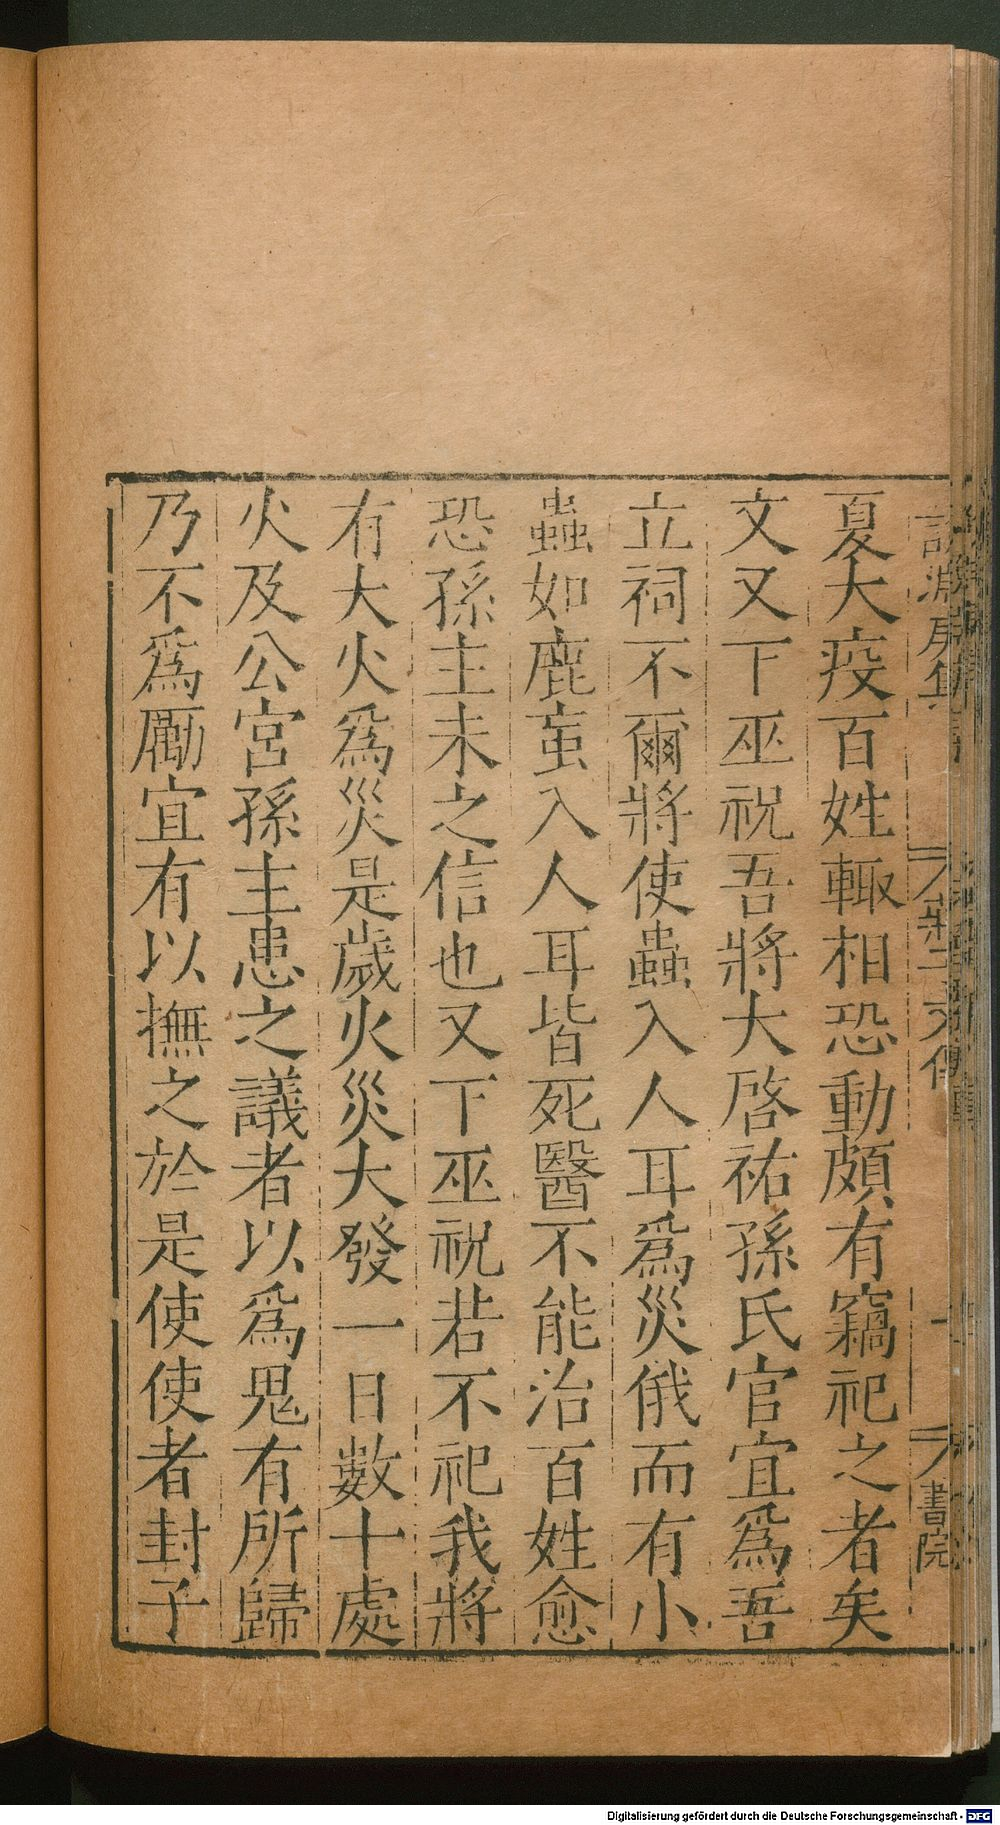 夏大疫百姓輙相恐動頗有竊祀之者矣
文又下巫祝吾將大啓祐孫氏官宜爲吾
立祠不爾將使蟲入人耳爲災俄而有小
蟲如鹿䖟入人耳皆死醫不能治百姓愈
恐孫主未之信也又下巫祝若不祀我將
有大火爲災是歲火災大發一日數十處
火及公宮孫主患之議者以爲鬼有所歸
乃不爲厲宜有以撫之於是使使者封子
書院
Digitalisierung gefördert durch die Deutsche Forschungsgemeinschaft - DFG